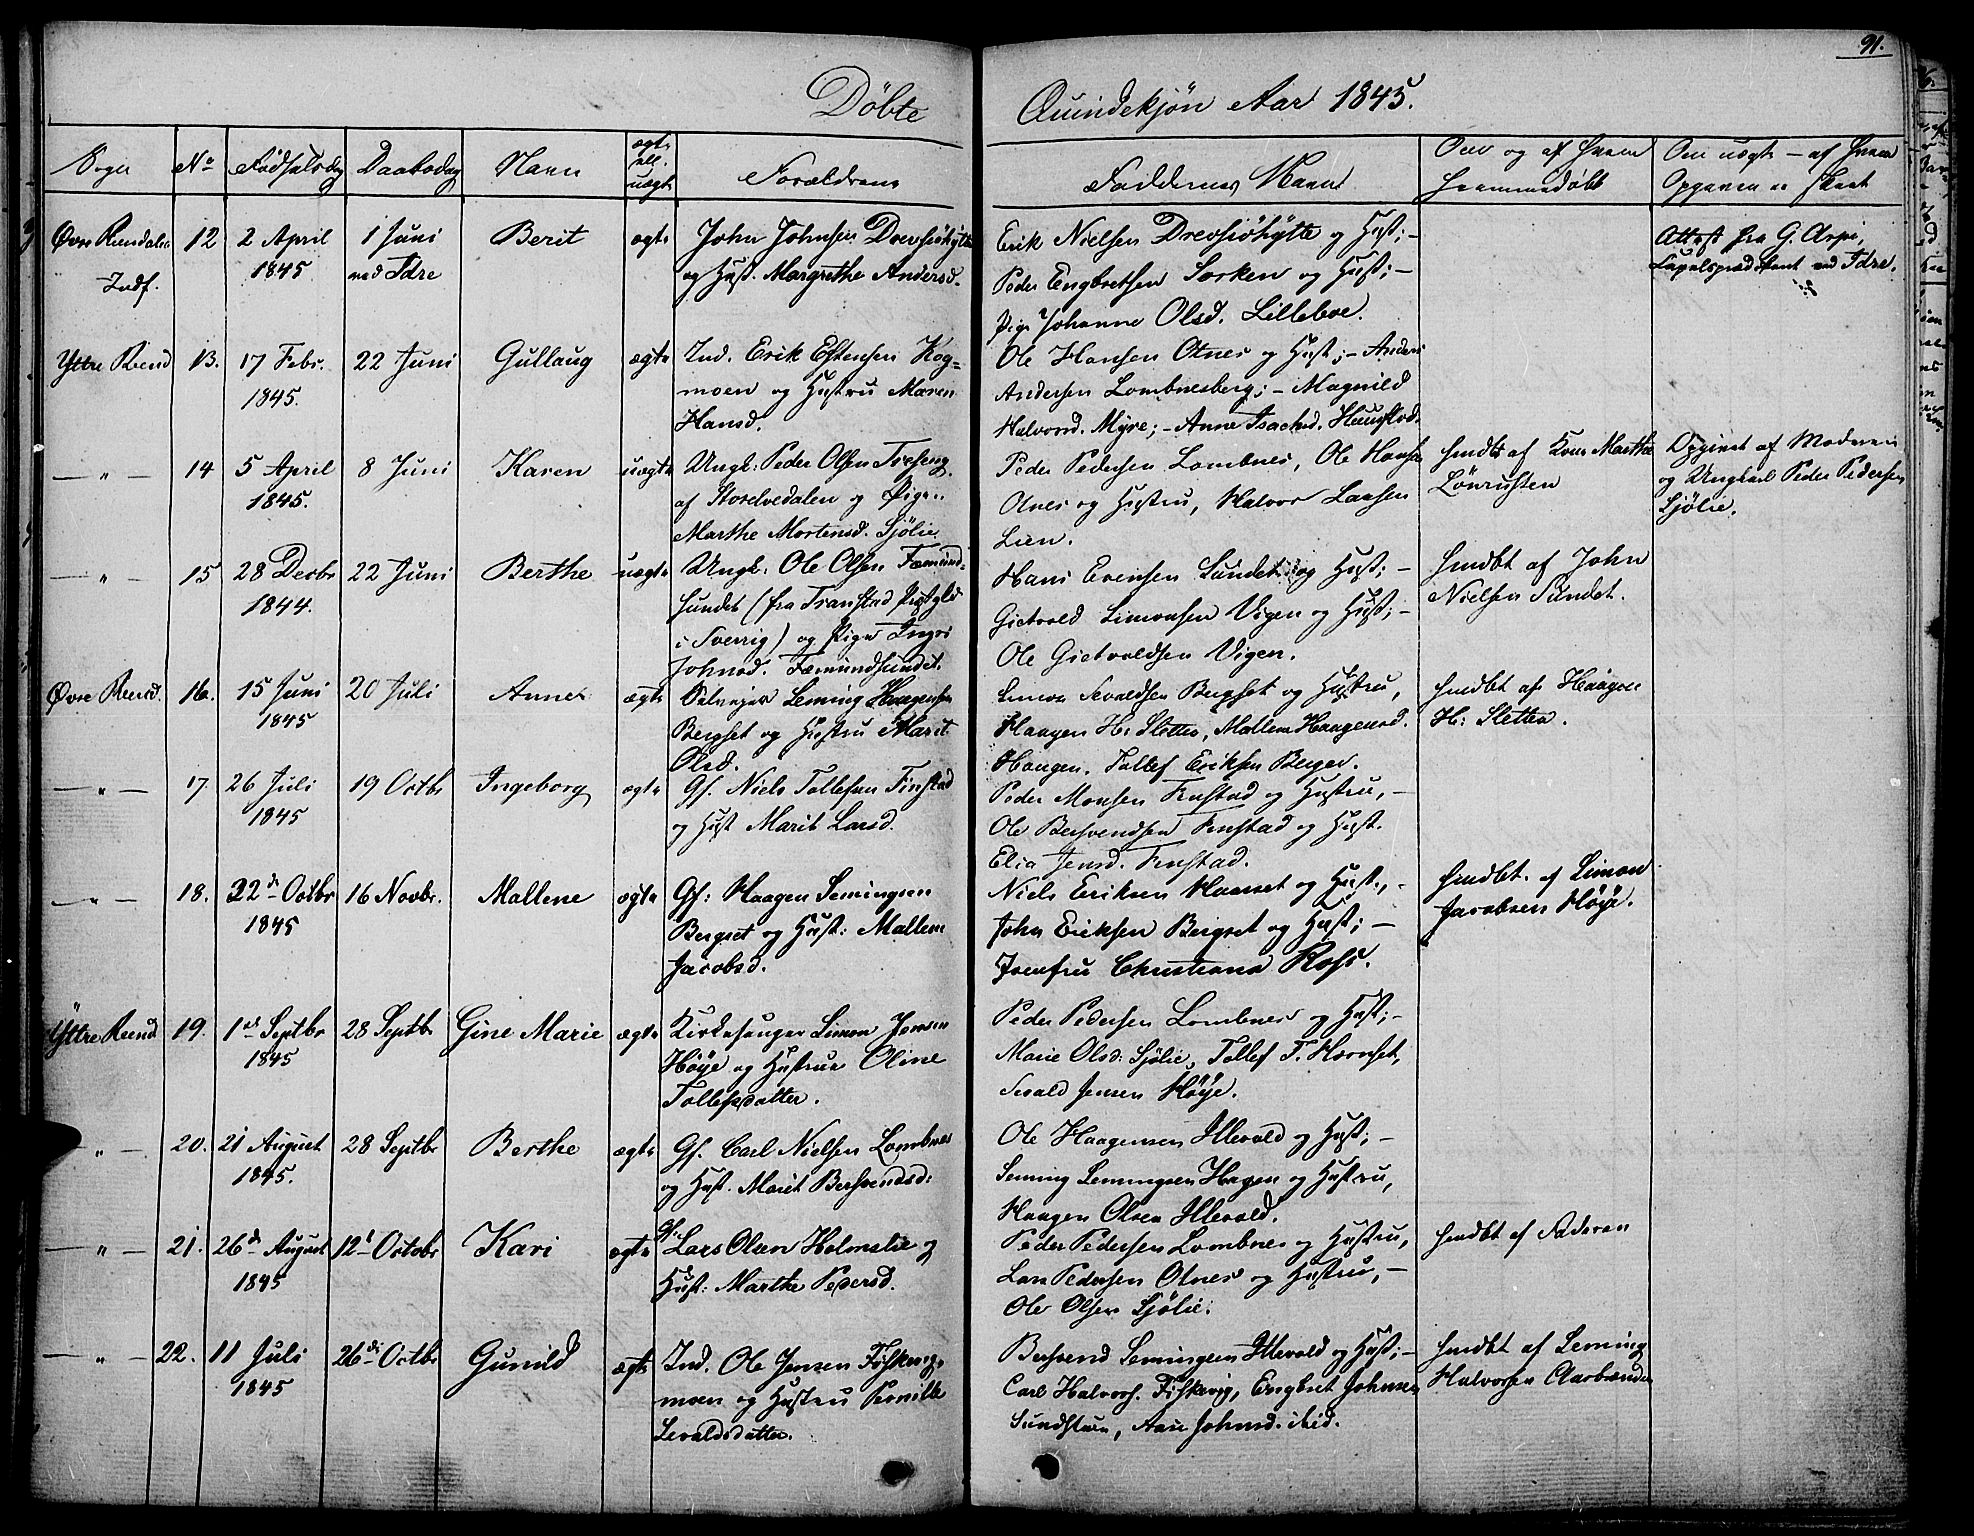 91.
Döbte Quindekjön Aar 1845.
Sogn No Födselsdag Daabsdag Navn ægte ell. uægte Forældrene Faddernes Navne Om og af hvem hjemmedöbt Om uægte - af hvem Opgaven er skeet
Øvre Rendalen 12 2 April 1 Juni Berit ægte John Johnsen Drevsiöhytte
Indf. 1845 ved Idre og Hust. Margrethe Andersd.
Erik Nielsen Drevsiöhytte og Hust; -
Peder Engbretsen Sorken og Hust; -
Pige Johanne Olsd. Lilleboe.
Attest fra G. Arpi,
Capelspredikant ved Idre.
Yttre Rend 13. 17 Febr. 22 Juni Gullaug ægte Ind. Erik Estensen Kog=
1845. moen og Hustru Maren
Hansd.
Ole Hansen Otnes og Hust; - Anders
Andersen Lombnesberg; - Magnild
Halvorsd. Myre; - Anne Isachsd. Haugstad.
— " — 14 5 April 8 Juni Karen uægte Ungk. Peder Olsen
1845. af Storelvedalen og Pige
Marthe Mortensd. Sjölie.
Peder Pedersen Lombnes, Ole Hansen
Otnes og Hustru, Halvor Larsen
Lien.
hmdbt af Kone Marthe
Lönrusten
Opgivet af Moderen
og Ungkarl Peder Pedersen
Sjölie.
— " — 15 28 Decbr 22 Juni Berthe uægte Ungk. Ole Olsen Fæmund=
1844. sundet (fra Transtad Præstgld
i Sverrig) og Pige Ingri
Johnsd. Fæmundsundet.
Hans Evensen Sundet og Hust; -
Gietvold Simonsen Vigen og Hust; -
Ole Gietvoldsen Vigen.
hmdbt af John
Nielsen Sundet.
Øvre Rend. 16. 15 Juni 20 Juli Anne ægte Selveier Seming Haagensen
1845 Bergset og Hustru Marit
Olsd.
Simon Sevaldsen Bergset og Hustru,
Haagen H: Sletten, Mallene Haagensd.
Haugen. Tollef Eriksen Berger.
hmdbt af Haagen
H: Sletten.
— " — 17. 26 Juli 19 Octbr Ingeborg ægte Gf. Niels Tollefsen Finstad
1845 og Hust Marit Larsd.
Peder Monsen Finstad og Hustru, -
Ole Bersvendsen Finstad og Hust.
Elia Jensd. Finstad.
— " — 18. 22de Octbr 16 Novbr. Mallene ægte Gf: Haagen Semingsen
1845 Bergset og Hust: Mallene
Jacobsd.
Niels Eriksen Haarset og Hust., -
John Eriksen Bergset og Hust; -
Jomfru Christiana Ross.
hmdbt. af Simon
Jacobsen Höye.
Yttre Rend 19. 1st Septbr 28 Septbr Gine Marie ægte Kirkesanger Simon Jensen
1845 Höye og Hustrue Oline
Tollefsdatter.
Peder Pedersen Lombnes og Hust; -
Marie Olsd: Sjölie, Tollef T. Hornset,
Sevald Jensen Höye.
— " — 20. 21 August 28 Septbr Berthe ægte Gf. Carl Nielsen Lombnes
1845. og Hust. Marit Bersvendsd:
Ole Haagensen Illevold og Hust; -
Seming Semingsen Hagen og Hustru,
Haagen Olsen Illevold.
— " — 21. 26de August 12t Octobr Kari ægte Gf. Lars Olsen Holmelie og
1845 Hust: Marthe Pedersd.
Peder Pedersen Lombnes og Hustru,
Lars Pedersen Otnes og Hustru, -
Ole Olsen Sjölie.
hmdbt af Faderen
— " — 22. 11 Juli 26de Octbr Gunild ægte Ind. Ole Jensen Fiskvig=
1845 moen og Hustru Pernille
Sevaldsdatter.
Bersvend Semingsen Illevold og Hust; -
Carl Halvors. Fiskevig, Engbret Johnsen
Sundstuen, Aase Johnsd. ibid.
hmdbt af Seming
Halvorsen Aarbrænden